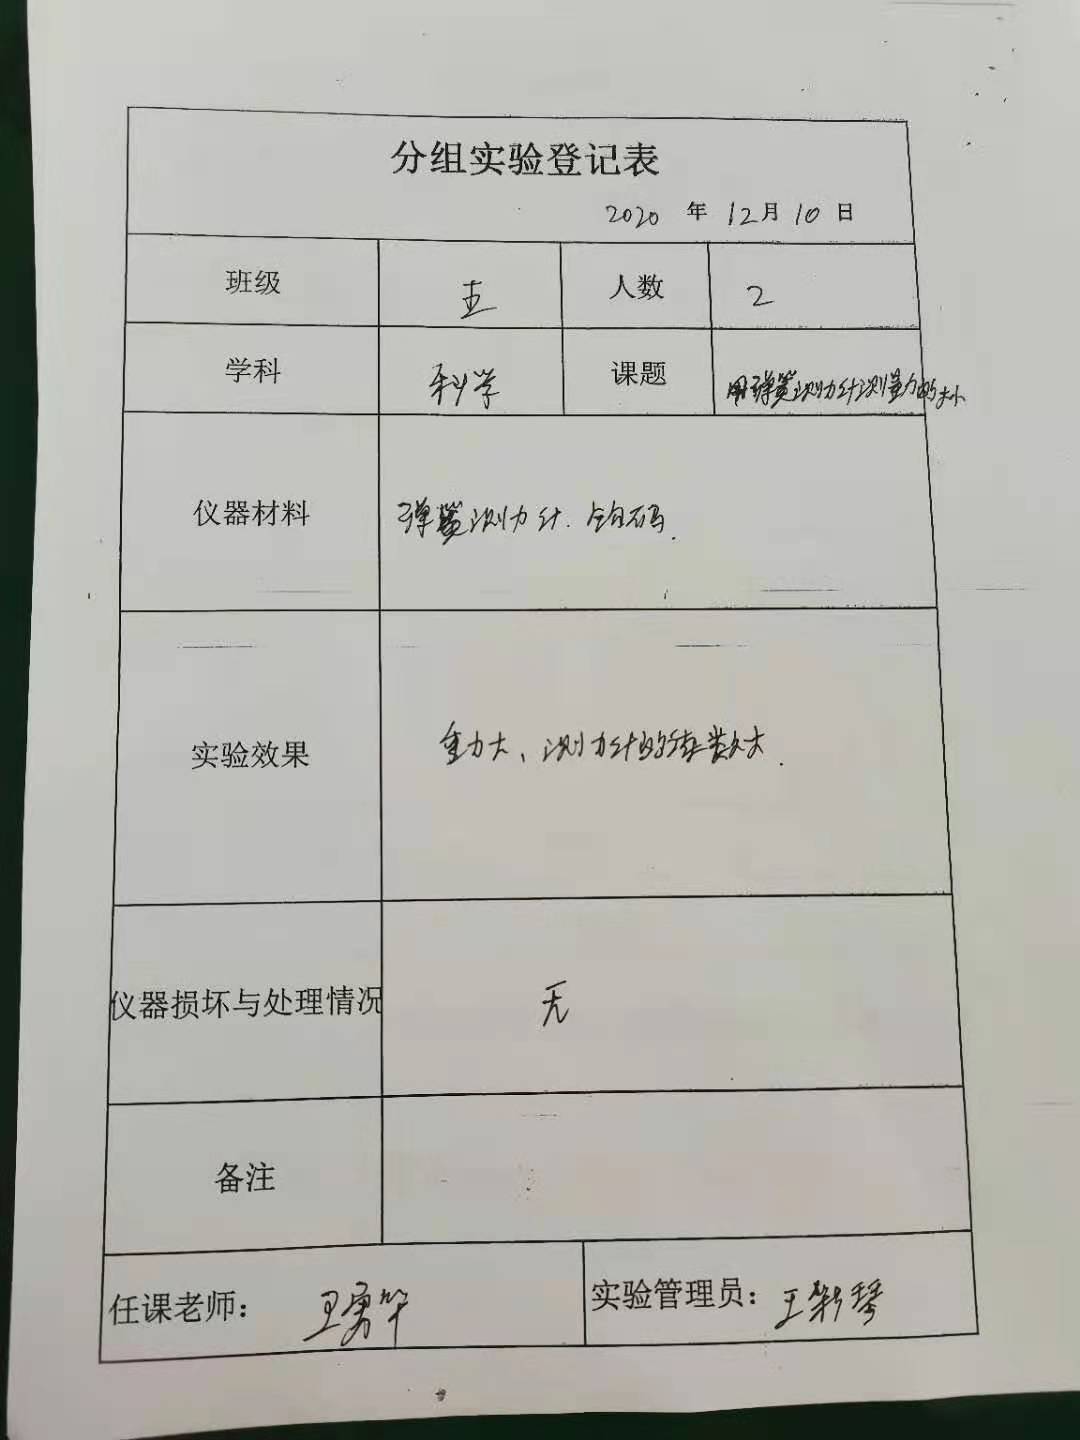 分组实验登记表
2020 年 12月 10 日
班级 五 人数 2
学科 科学 课题 用弹簧测力计测量力的大小
仪器材料 弹簧测力计、钩码.
实验效果 重力大、测力计的读数大.
仪器损坏与处理情况 无
备注
任课老师: 卫勇华 实验管理员: 王新琴